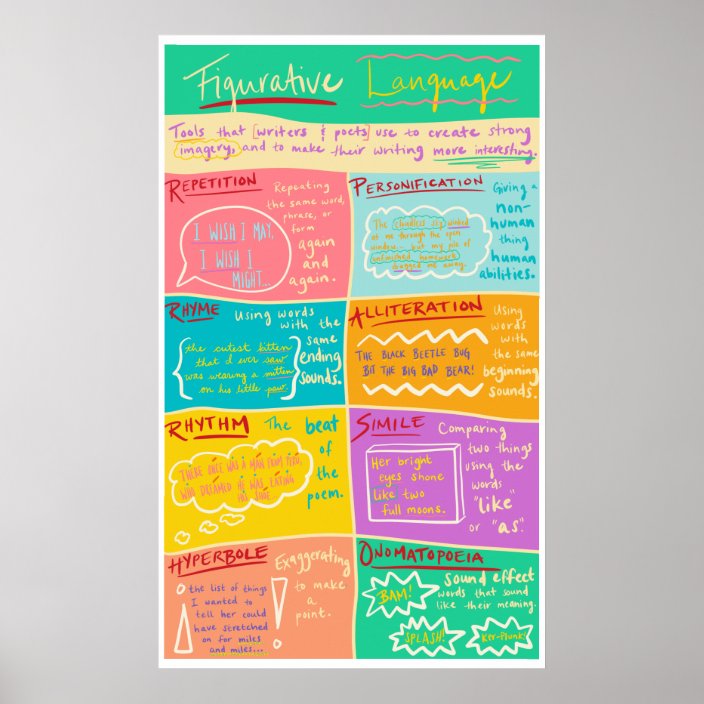 Figurative Language
Tools that [writers & poets] use to create strong
imagery, and to make their writing more interesting.
REPETITION
Repeating
the same word,
phrase, or
form
again
and
again.
I WISH I MAY,
I WISH I
MIGHT...
PERSONIFICATION
Giving a
non-
human
thing
human
abilities.
The cloudless sky winked
at me through the open
window... but my pile of
unfinished homework
dragged me away.
RHYME
Using words
with the
same
ending
sounds.
the cutest kitten
that I ever saw
was wearing a mitten
on his little paw.
ALLITERATION
Using
words
with
the same
beginning
sounds.
THE BLACK BEETLE BUG
BIT THE BIG BAD BEAR!
RHYTHM
The beat
of
the
poem.
THERE ONCE WAS A MAN FROM PERU,
WHO DREAMED HE WAS EATING
HIS SHOE...
SIMILE
Comparing
two things
using the
words
"like"
or "as."
Her bright
eyes shone
like two
full moons.
HYPERBOLE
Exaggerating
to make
a
point.
the list of things
I wanted to
tell her could
have stretched
on for miles
and miles...
ONOMATOPOEIA
sound effect
words that sound
like their meaning.
BAM!
SPLASH!
Ker-plunk!